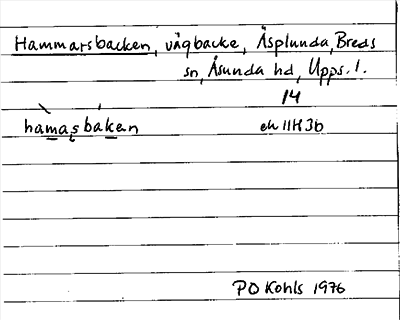 Hammarsbacken, vägbacke, Äsplunda, Breds
sn, Åsunda hd, Upps. l.
14
hamasbakan ek 11H3b
PO Kohls 1976